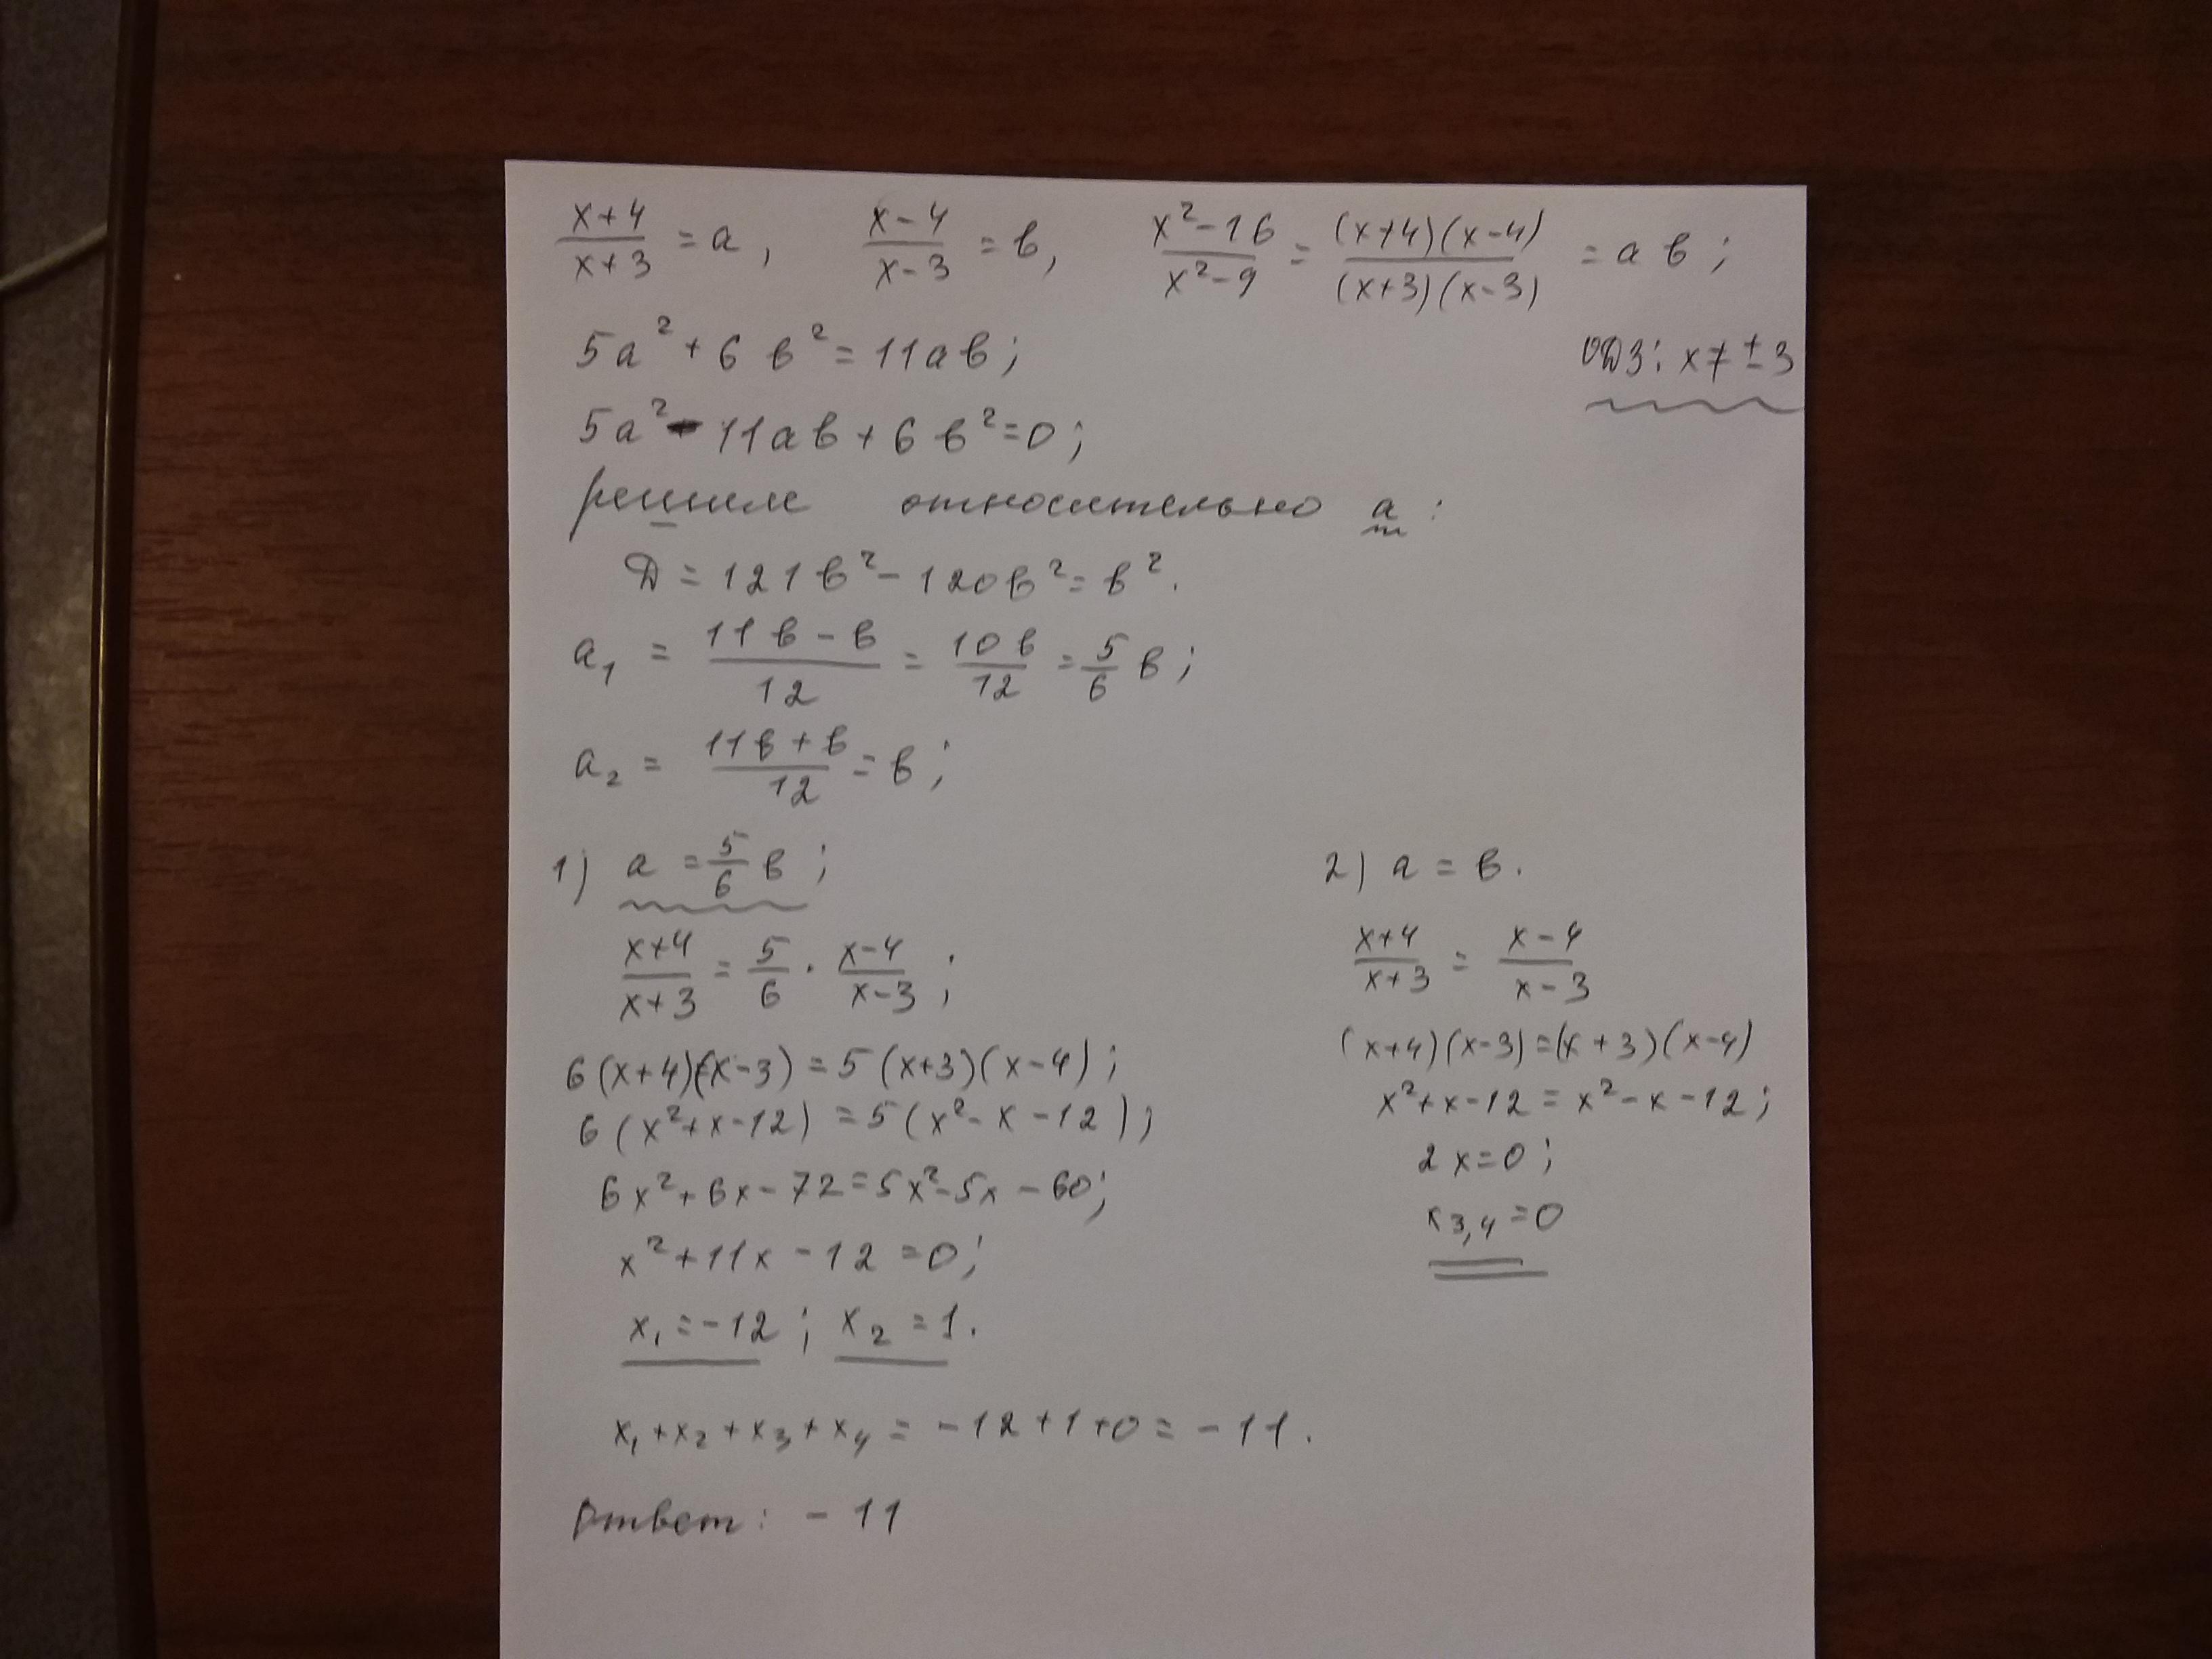 (x+4)/(x+3) = a, (x-4)/(x-3) = в, (x²-16)/(x²-9) = ((x+4)(x-4))/((x+3)(x-3)) = aв;
5a² + 6в² = 11aв; ОДЗ: x ≠ ±3
5a² - 11aв + 6в² = 0;
решим относительно a:
Д = 121в² - 120в² = в².
a₁ = (11в - в)/12 = 10в/12 = 5/6 в;
a₂ = (11в + в)/12 = в;
1) a = 5/6 в;
(x+4)/(x+3) = 5/6 · (x-4)/(x-3);
6(x+4)(x-3) = 5(x+3)(x-4);
6(x²+x-12) = 5(x²-x-12);
6x²+6x-72 = 5x²-5x-60;
x²+11x-12 = 0;
x₁ = -12; x₂ = 1.
2) a = в.
(x+4)/(x+3) = (x-4)/(x-3)
(x+4)(x-3) = (x+3)(x-4)
x²+x-12 = x²-x-12;
2x = 0;
x₃,₄ = 0
x₁+x₂+x₃+x₄ = -12+1+0 = -11.
Ответ: -11